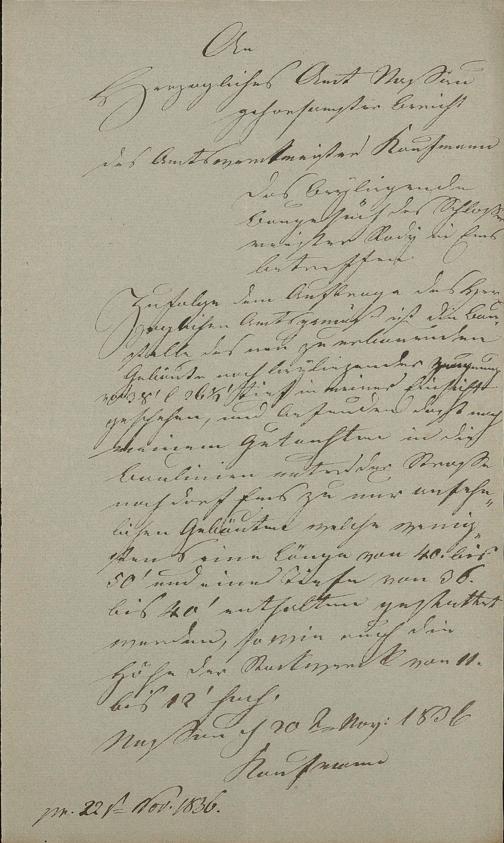 An
Herzogliches Amt Nassau
gehorsamster Bericht
des Amtswerkmeister Kaufmann
das beyliegende
Baugesuch des Schloß
meister Rody in Ems
betreffen
Zufolge dem Auftrage des Her
zoglichen Amts ist die Bau
stelle des neu zu erbauenden
Gebäude nach beyliegender
38' l 26½' tief in meiner
geschehen, und befunden daß nach
meinem Gutachten in die
Baulinien der Straße
nach Dorf Ems zu nur ansehn„
lichen Gebäuden welche wenig„
stens eine Länge von 40. bis
50' und eine Tiefe von 36.
bis 40' enthalten gestattet
werden, sowie auch die
Höhe der Stockwerk von 11.
bis 12' hoch.
Nassau d 20 Nov: 1836
Kaufmann
pr. 22 Nov. 1836.